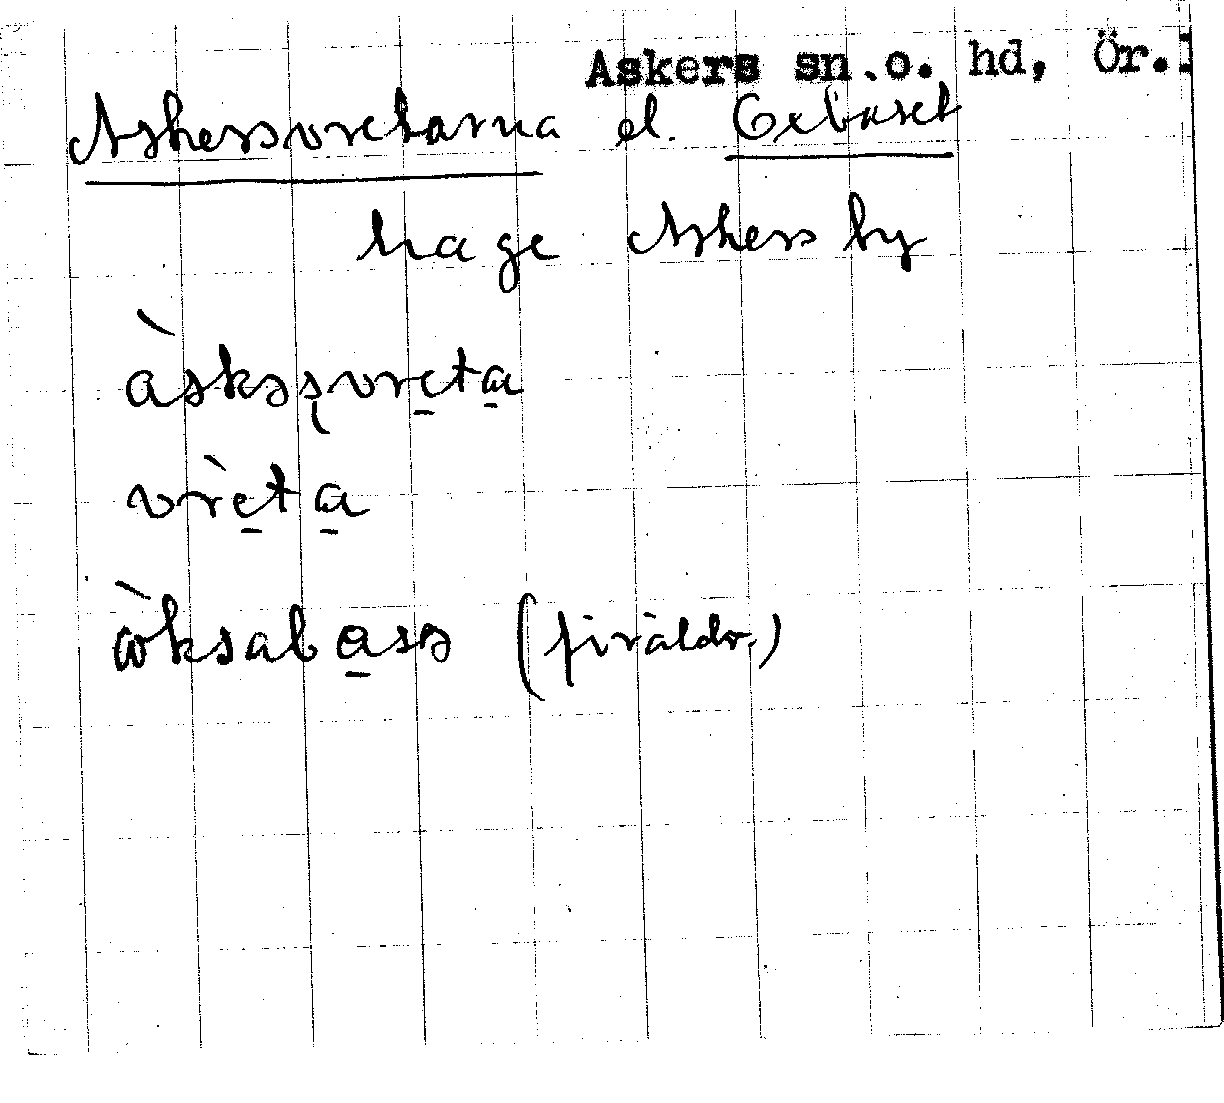 Askers sn.o. hd, Ör.l
Askersvretarna el. Oxbåset
hage Askers by
àskʂvreta
vrèta
òksabåss (föråldr.)